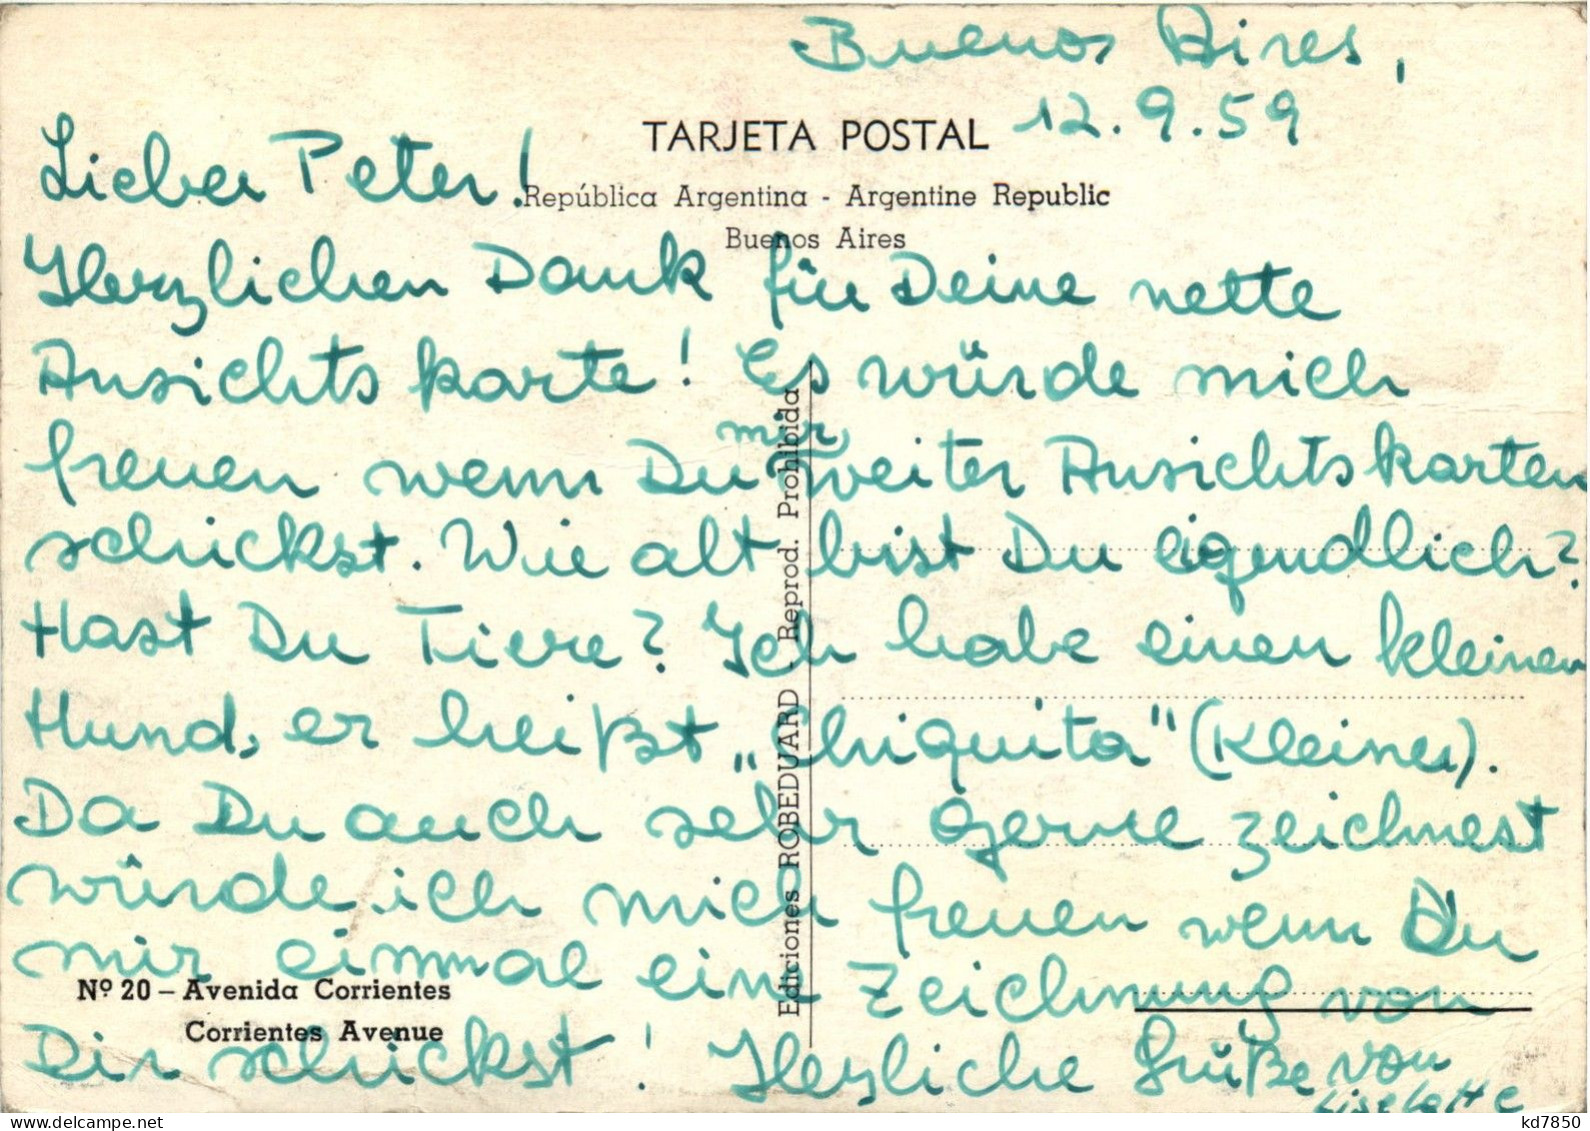 Buenos Aires,
12.9.59
TARJETA POSTAL
República Argentina - Argentine Republic
Buenos Aires
Lieber Peter!
Herzlichen Dank für Deine nette
Ansichtskarte! Es würde mich
freuen wenn Du mir weiter Ansichtskarten
schickst. Wie alt bist Du eigendlich?
Hast Du Tiere? Ich habe einen kleinen
Hund, er heißt „Chiquita" (Kleines).
Da Du auch sehr gerne zeichnest
würde ich mich freuen wenn Du
mir einmal eine Zeichnung von
Dir schickst! Herzliche Grüße von
Liselotte
Nº 20 – Avenida Corrientes
Corrientes Avenue
Ediciones ROBEDUARD - Reprod. Prohibida
delcampe.net
kd7850